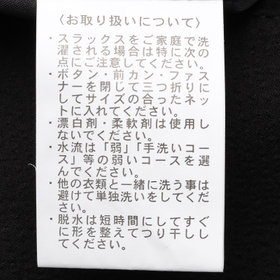 〈お取り扱いについて〉
・スラックスをご家庭で洗
濯される場合は特に次の
点にご注意してください。
・ボタン・前カン・ファス
ナーを閉じて三つ折りに
してサイズの合ったネット
に入れてください。
・漂白剤・柔軟剤は使用し
ないでください。
・水流は「弱」「手洗いコー
ス」等の弱いコースを選
んでください。
・他の衣類と一緒に洗う事は
避けて単独洗いをしてくだ
さい。
・脱水は短時間にしてすぐ
に形を整えてつり干しし
てください。